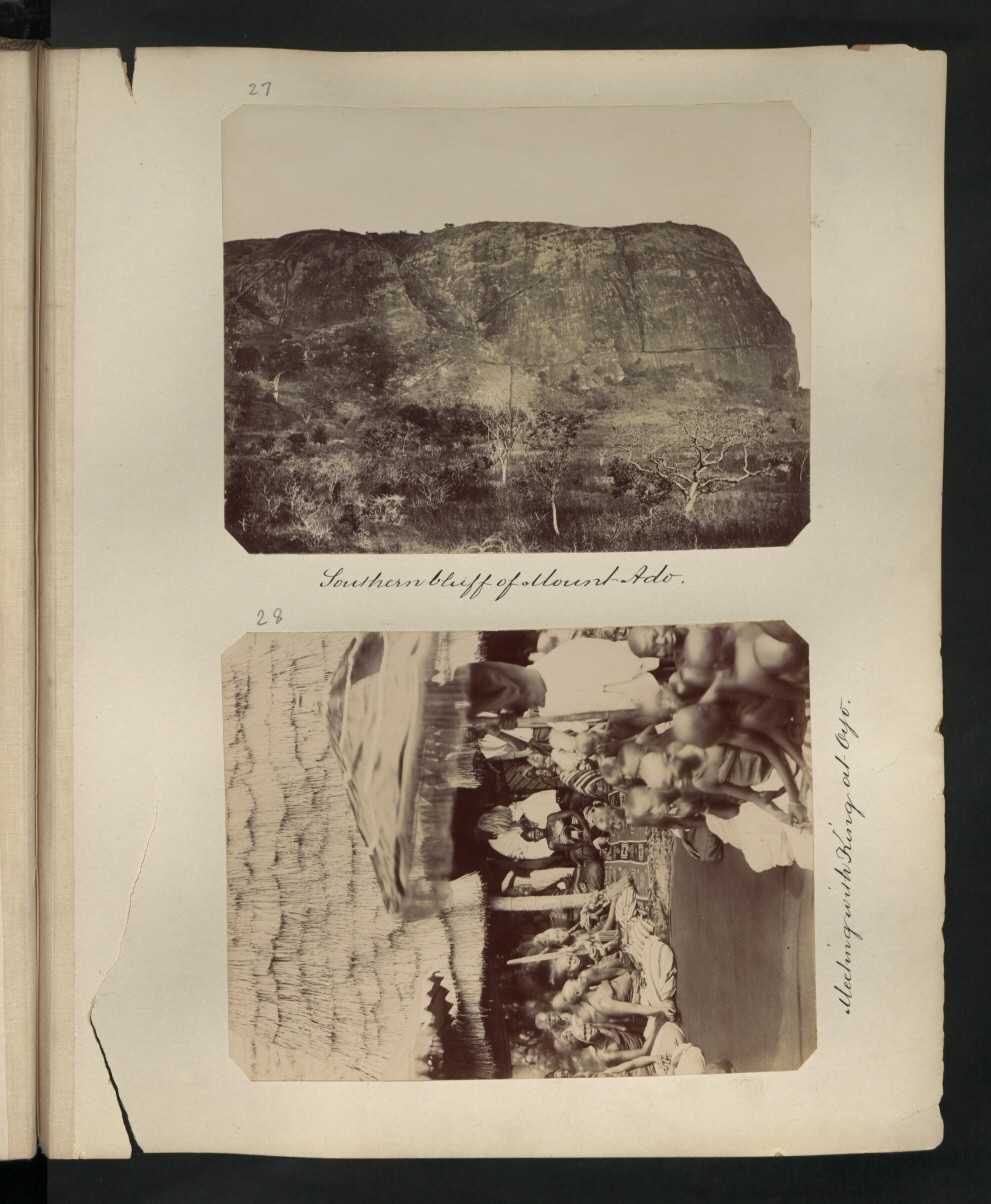 27
Southern bluff of Mount Ado.
28
Meeting with King at Oyo.